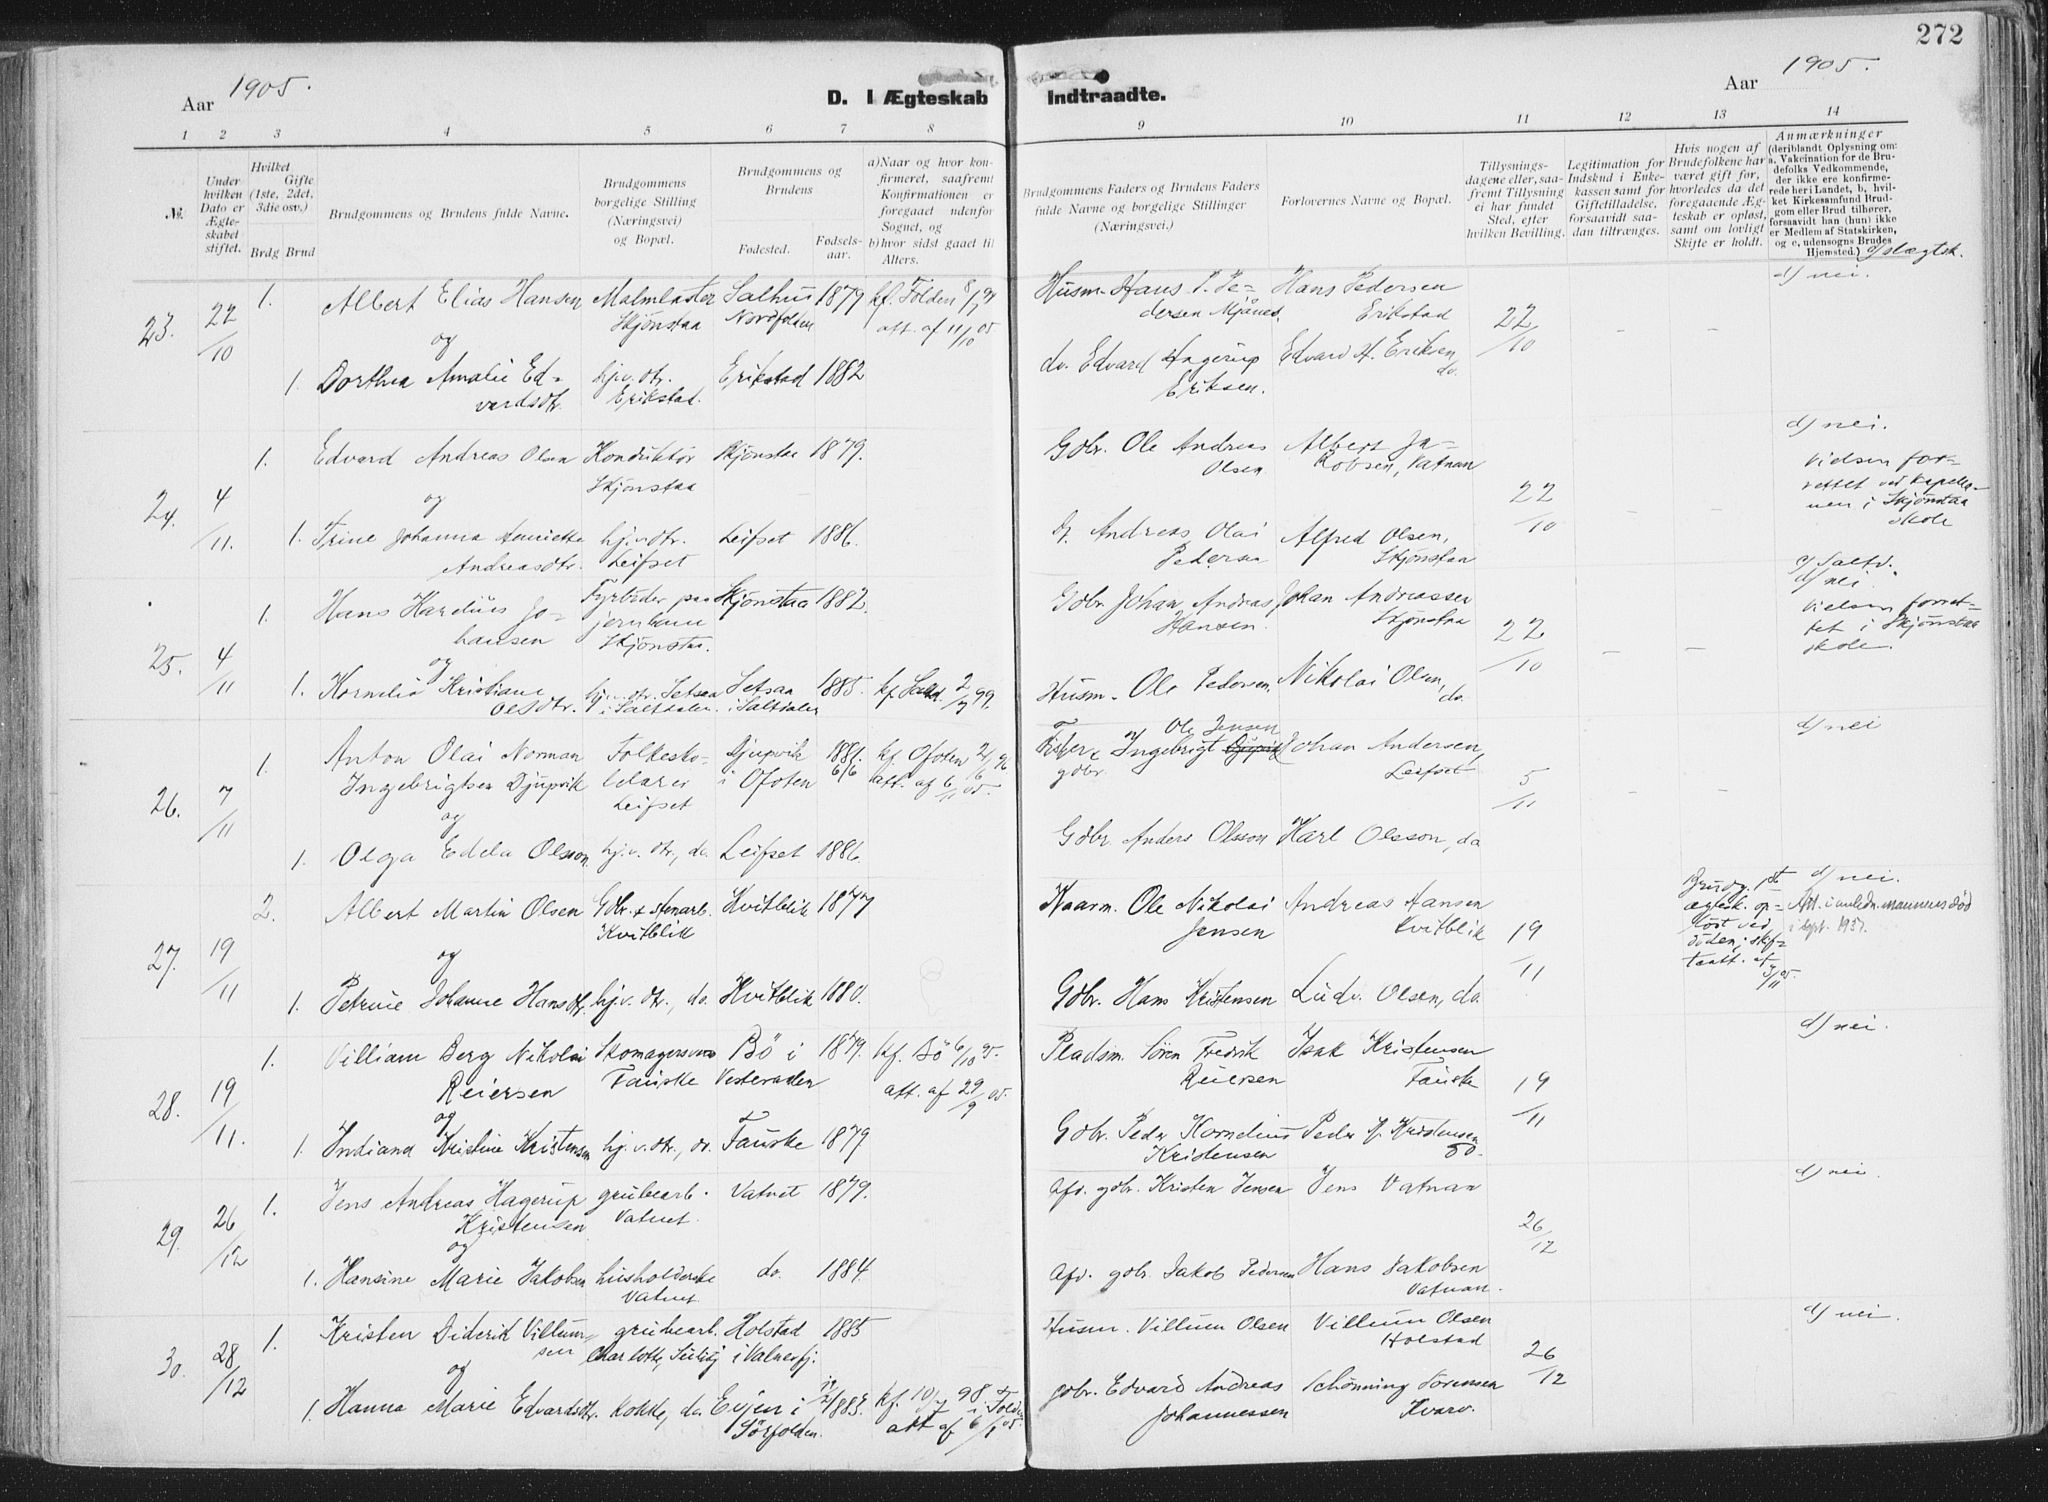 272
Aar 1905.
D. I Ægteskab Indtraadte.
Aar 1905.
1 2 3 4 5 6 7 8 9 10 11 12 13 14
№.
Under hvilken Dato er Ægteskabet stiftet.
Hvilket Gifte (1ste, 2det, 3die osv.)
Brdg Brud
Brudgommens og Brudens fulde Navne.
Brudgommens borgelige Stilling (Næringsvei) og Bopæl.
Brudgommens og Brudens
Fødested.
Fødselsaar.
a) Naar og hvor konfirmeret, saafremt Konfirmationen er foregaaet udenfor Sognet, og
b) hvor sidst gaaet til Alters.
Brudgommens Faders og Brudens Faders fulde Navne og borgelige Stillinger (Næringsvei.)
Forlovernes Navne og Bopæl.
Tillysningsdagene eller, saafremt Tillysning ei har fundet Sted, efter hvilken Bevilling.
Legitimation for Indskud i Enkekassen samt for Giftetilladelse, forsaavidt saadan tiltrænges.
Hvis nogen af Brudefolkene har været gift før, hvorledes da det foregaaende Ægteskab er opløst, samt om lovligt Skifte er holdt.
Anmærkninger (deriblandt Oplysning om: a. Vakcination for de Brudefolks Vedkommende, der ikke ere konfirmerede her i Landet, b, hvilket Kirkesamfund Brudgom eller Brud tilhører, forsaavidt han (hun) ikke er Medlem af Statskirken, og c, udensogns Brudes Hjemsted.) d/ slægtsk.
23. 22/10 1. Albert Elias Hansen Malmlaster Skjönstaa Salhus Nordfolden 1879 kf. Folden 8/7 94 att. af 11/10 05 Husm. Hans P. Pedersen Mjånes. Hans Pedersen Erikstad 22/10 - - d/ nei.
og
1. Dorthea Amalie Edvardsdtr. hj.v. dtr. Erikstad. Erikstad 1882 do. Edvard Hagerup Eriksen. Edvard H. Eriksen, do.
24. 4/11. 1. Edvard Andreas Olsen Konduktör Skjönstaa Skjönstaa 1879. Gdbr. Ole Andreas Olsen Albert Jakobsen, Vatnan 22/10 - - d/ nei. Vielsen forrettet ved Kapellanen i Skjönstaa skole
og
1. Trine Johanna Henrikke Andreasdtr. hj.v. dtr. Leifset Leifset 1886. Andreas Olai Pedersen Alfred Olsen, Skjönstaa
25. 4/11 1. Hans Hardius Johansen Fyrböder paa jernbane Skjönstaa. Skjönstaa 1882. Gdbr. Johan Andreas Hansen. Johan Andreassen Skjönstaa 22/10 - - c/ Saltd. d/ nei. Vielsen forrettet i Skjönstaa skole.
og
1. Kornelia Kristiane Olsdtr. hj.v. dtr. Setsaa i Saltdalen. Setsaa i Saltdalen 1885. kf. Saltd. 2/7 99. Husm. Ole Pedersen Nikolai Olsen, do.
26. 7/11 1. Anton Olai Norman Ingebrigtsen Djupvik Folkeskolelærer Leifset Djupvik i Ofoten 1881. 6/6 kf. Ofoten 21/6 96 att. af 6/11 05. Fisker & gdbr. Ingebrigt Ole Jensen Djupvik Johan Andersen, Leifset 5/11 - - d/ nei
og
1. Olga Edela Olsson. hj.v. dtr., do. Leifset 1886. Gdbr. Anders Olsson Karl Olsson, do
27. 19/11 2. Albert Martin Olsen Gdbr. & stenarb. Kvitblik Kvitblik 1877 Kaarm. Ole Nikolai Jensen Andreas Hansen Kvitblik 19/11 Brudg. 1ste ægtesk. oplöst ved döden; skiftaatt. af 3/11 05. d/ nei. Att. i anledn. mannens död i sept. 1937.
og
1. Petrine Johanne Hansdtr. hj.v. dtr., do. Kvitblik 1880. Gdbr. Hans Kristensen Ludv. Olsen, do.
28. 19/11. 1. Villiam Berg Nikolai Reiersen Skomagersvend Fauske Bö i Vesteraalen 1879. kf. Bö 6/10 95. att. af 29/9 05. Pladsm. Sören Fredrik Reiersen Isak Kristensen Fauske 19/11 d/ nei.
og
1. Indiana Kristine Kristensen hj.v. dtr., do. Fauske 1879 Gdbr. Peder Kornelius Kristensen Peder H. Kristensen do.
29. 26/12 1. Jens Andreas Hagerup Kristensen grubearb. Vatnet. Vatnet 1879. Afd. gdbr. Kristen Jensen Jens Vatnan 26/12 d/ nei.
og
1. Hansine Marie Jakobsen husholderske Vatnet do. 1884. Afd. gdbr. Jakob Pedersen Hans Jakobsen Vatnan.
30. 28/12 1. Kristen Diderik Villumsen grubearb. Charlotte, Sulitj. Holstad i Valnesfj. 1885 Husm. Villum Olsen Villum Olsen Holstad 26/12 d/ nei.
og
1. Hanna Marie Edvardsdtr. kokke, do. Evjen i Sörfolden. 1883. kf. 10/7 98 i Folden att af 6/1 05. gdbr. Edvard Andreas Johannessen Schönning Sörensen Kvarv.